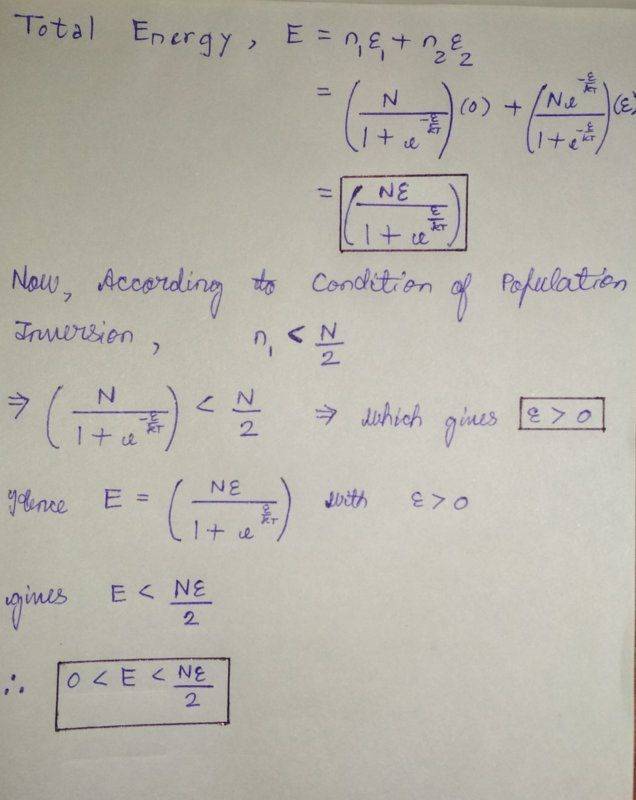 Total Energy, E = n₁ε₁ + n₂ε₂
= (N / (1 + e^(-ε/kT))) (0) + (N e^(-ε/kT) / (1 + e^(-ε/kT))) (ε)
= (Nε / (1 + e^(ε/kT)))
Now, According to Condition of Population
Inversion, n₁ < N/2
⇒ (N / (1 + e^(-ε/kT))) < N/2 ⇒ which gives ε > 0
Hence E = (Nε / (1 + e^(ε/kT))) with ε > 0
gives E < Nε/2
∴ 0 < E < Nε/2